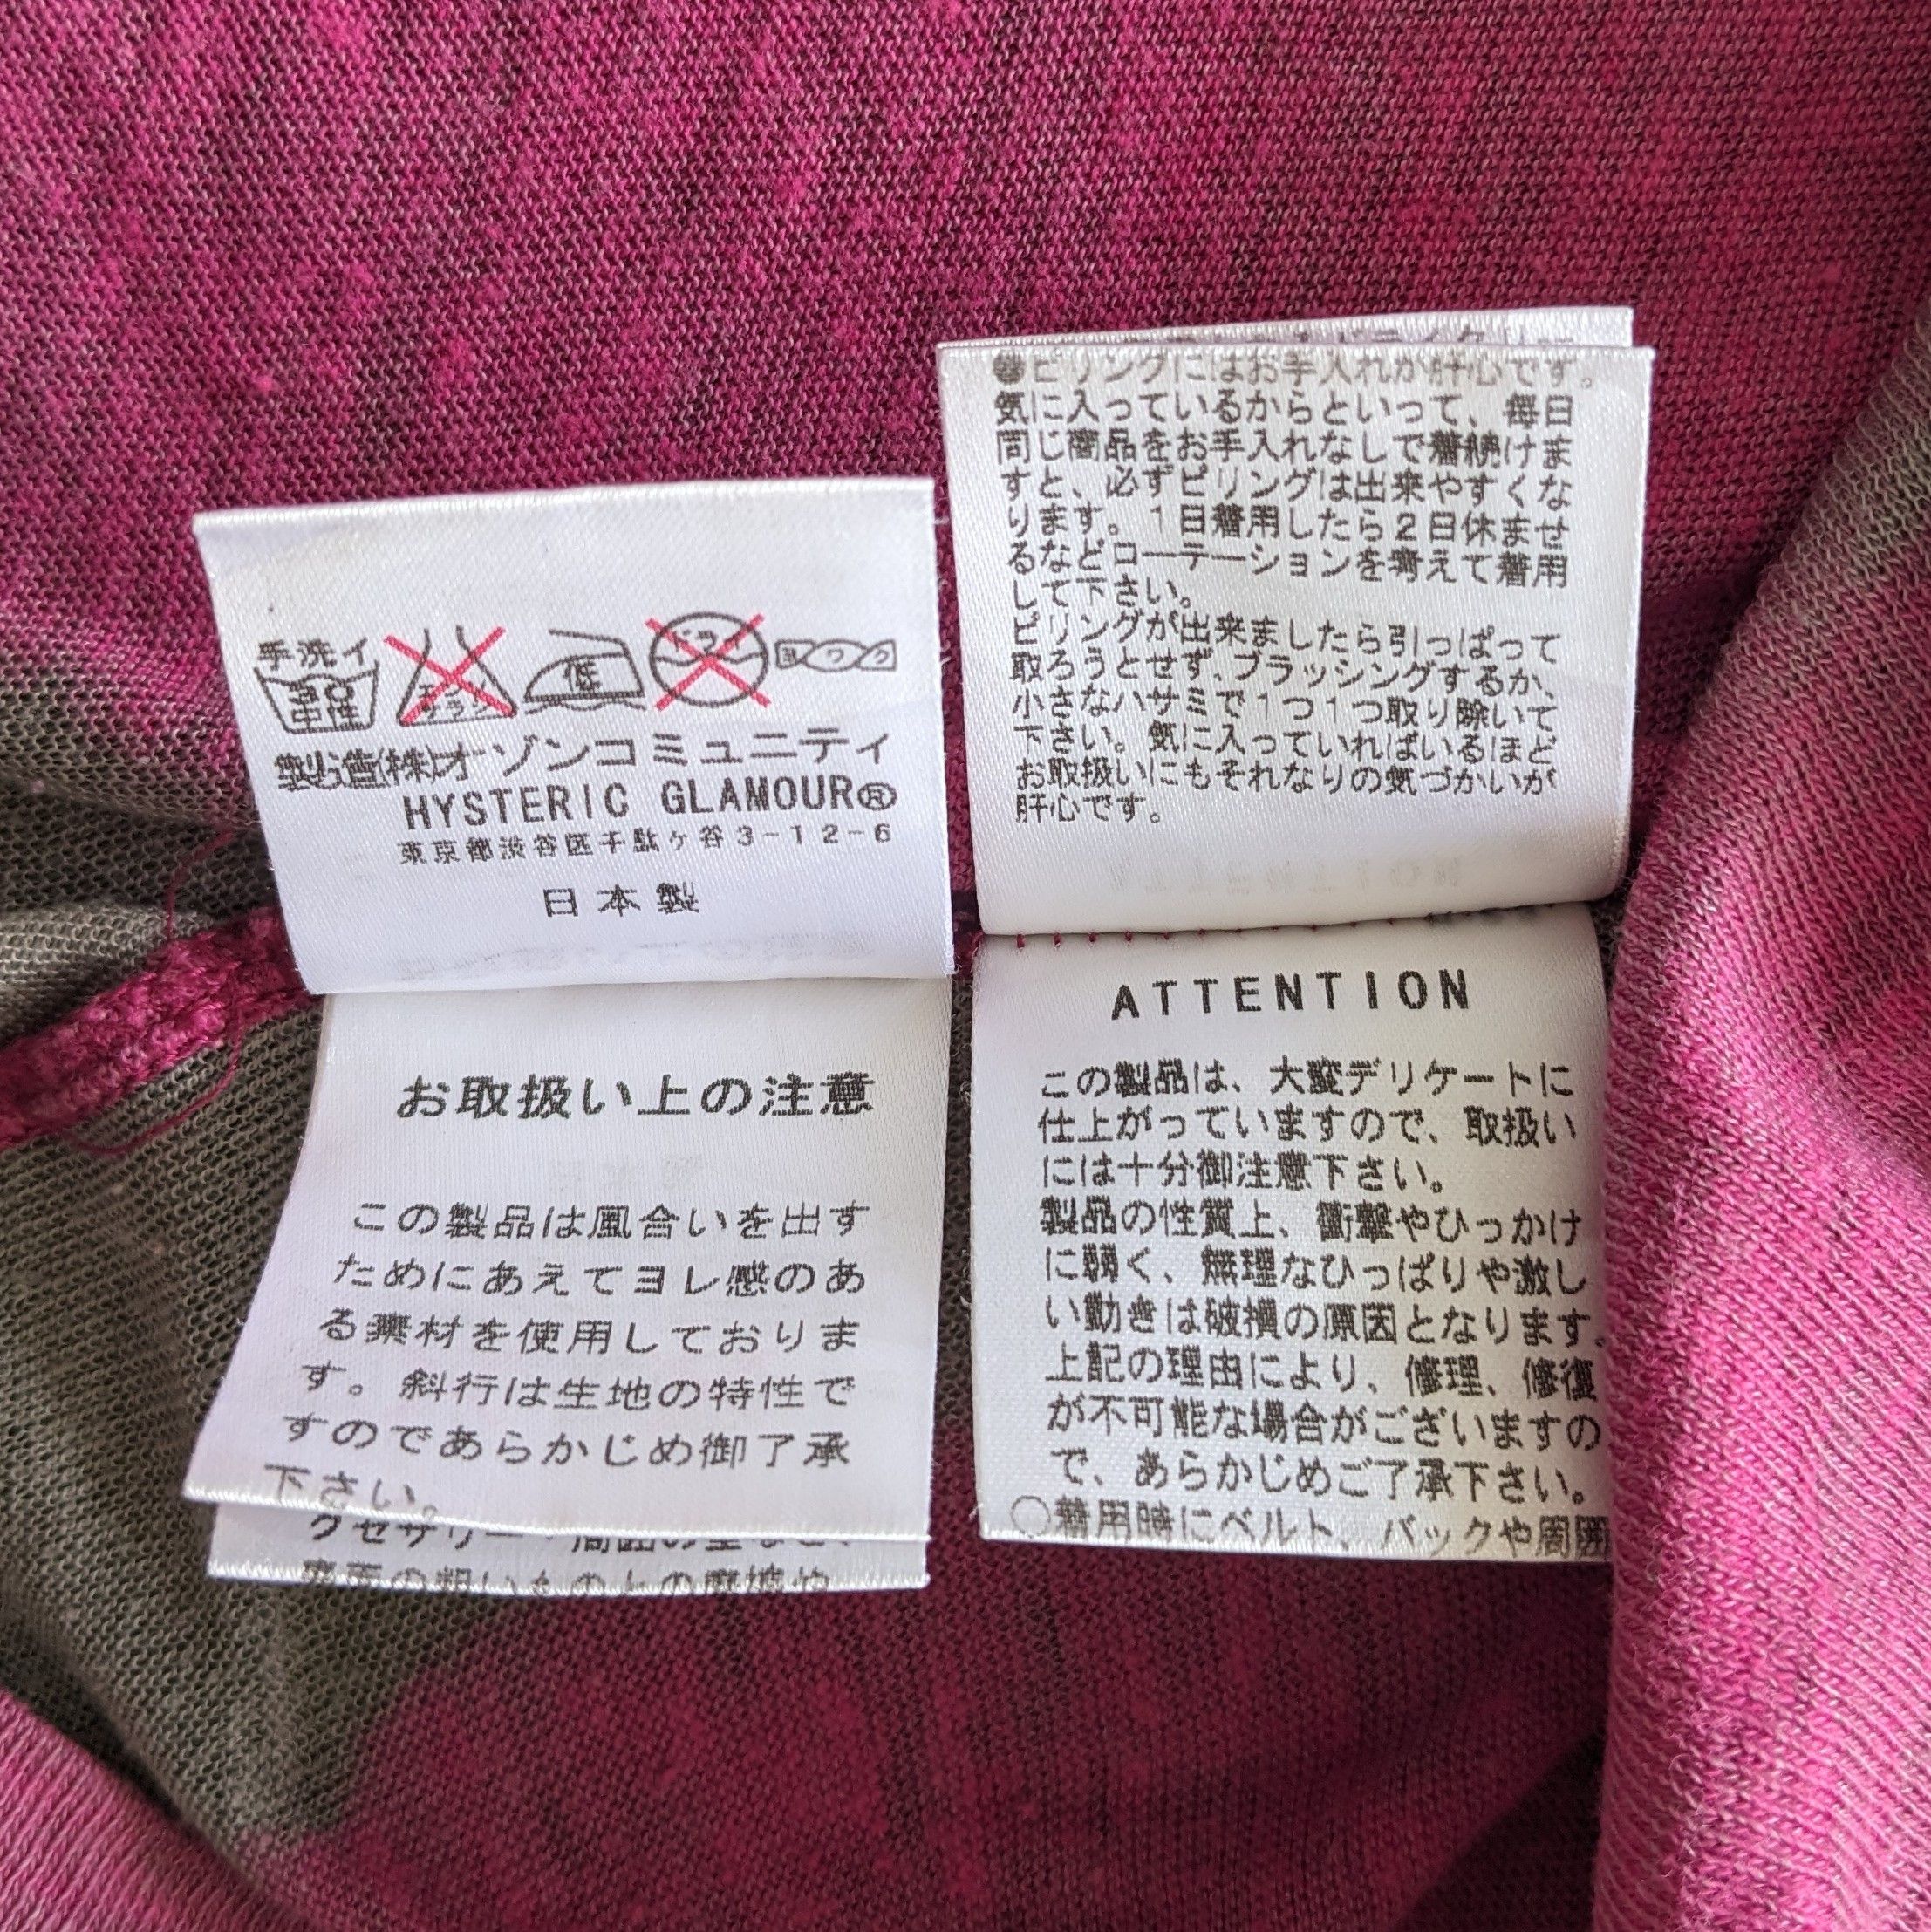 手洗イ
中性
低
ヨワク
製造(株)オーゾンコミュニティ
HYSTERIC GLAMOUR®
東京都渋谷区千駄ヶ谷3-12-6
日本製
お取扱い上の注意
この製品は風合いを出す
ためにあえてヨレ感のあ
る素材を使用しておりま
す。斜行は生地の特性で
すのであらかじめ御了承
下さい。
●ピリングにはお手入れが肝心です。
気に入っているからといって、毎日
同じ商品をお手入れなしで着続けま
すと、必ずピリングは出来やすくな
ります。1日着用したら2日休ませ
るなどローテーションを考えて着用
して下さい。
ピリングが出来ましたら引っぱって
取ろうとせず、ブラッシングするか、
小さなハサミで1つ1つ取り除いて
下さい。気に入っていればいるほど
お取扱いにもそれなりの気づかいが
肝心です。
ATTENTION
この製品は、大変デリケートに
仕上がっていますので、取扱い
には十分御注意下さい。
製品の性質上、衝撃やひっかけ
に弱く、無理なひっぱりや激し
い動きは破損の原因となります。
上記の理由により、修理、修復
が不可能な場合がございますの
で、あらかじめご了承下さい。
○着用時にベルト、バックや周囲